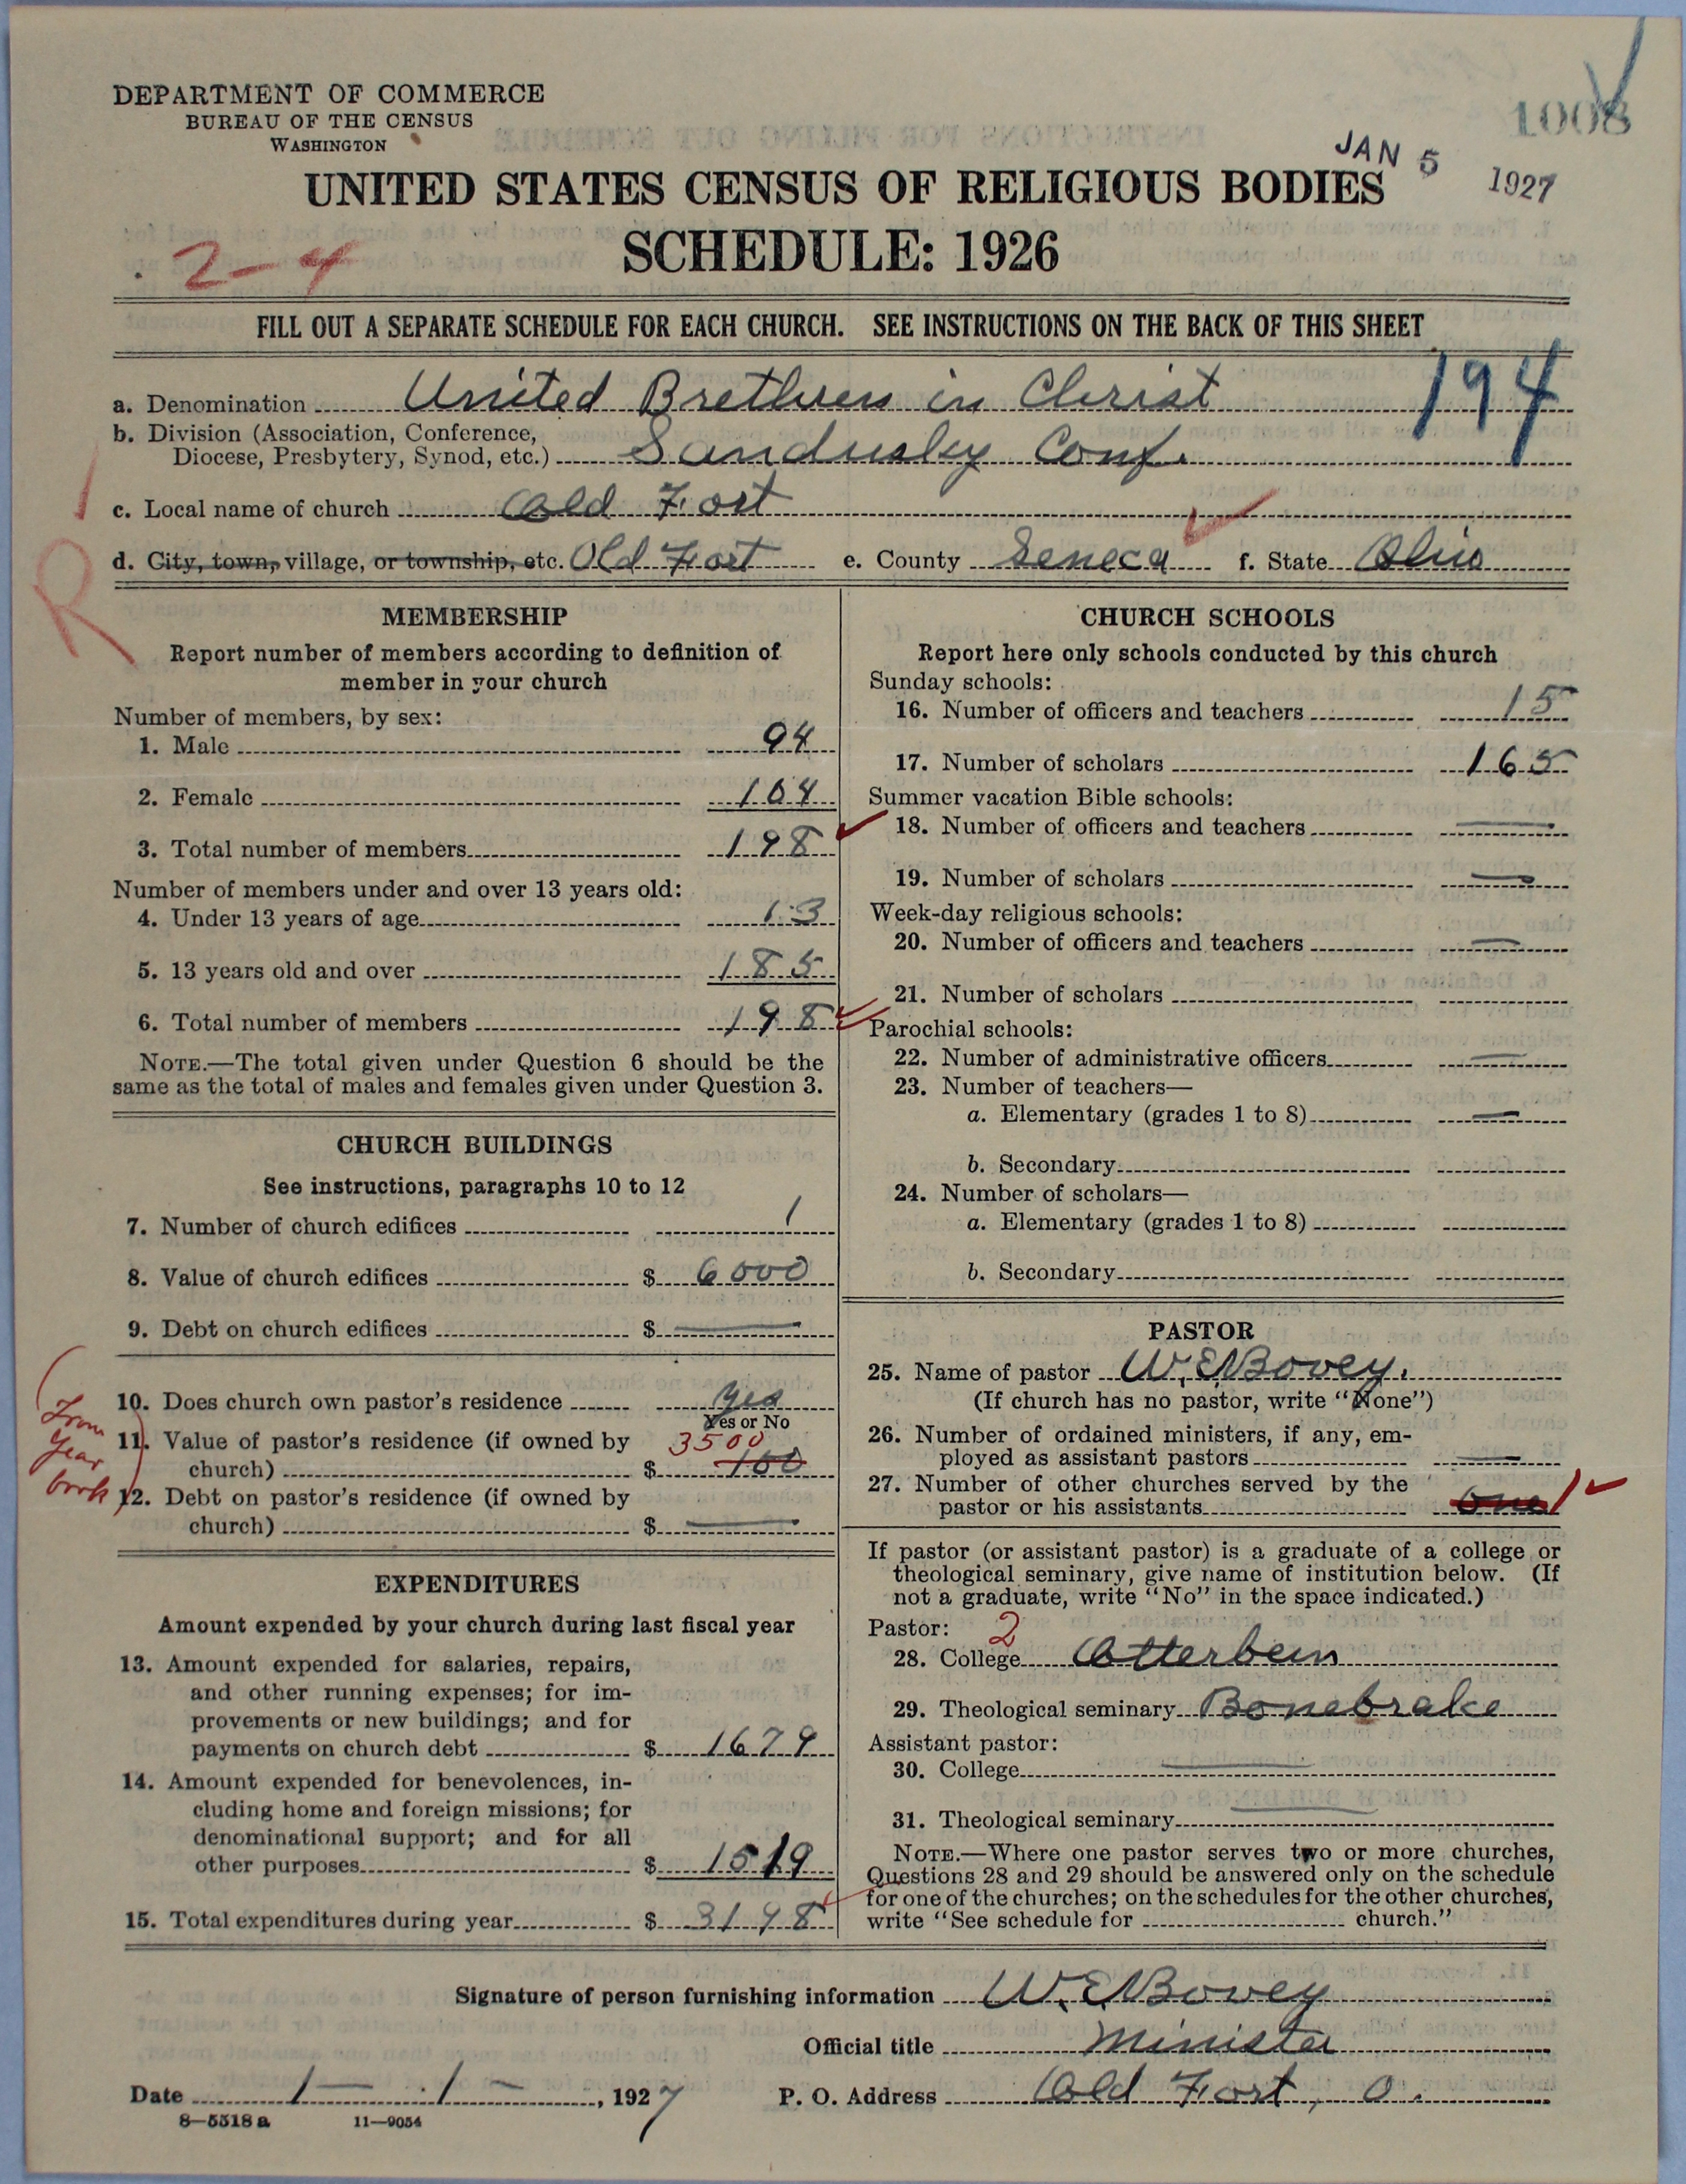 DEPARTMENT OF COMMERCE
BUREAU OF THE CENSUS
WASHINGTON
1008
JAN 5 1927
UNITED STATES CENSUS OF RELIGIOUS BODIES
SCHEDULE: 1926
2-4
FILL OUT A SEPARATE SCHEDULE FOR EACH CHURCH. SEE INSTRUCTIONS ON THE BACK OF THIS SHEET
194
a. Denomination United Brethren in Christ
b. Division (Association, Conference,
Diocese, Presbytery, Synod, etc.) Sandusky Conf.
c. Local name of church Old Fort
d. City, town, village, or township, etc. Old Fort e. County Seneca f. State Ohio
R
MEMBERSHIP
Report number of members according to definition of
member in your church
Number of members, by sex:
1. Male 94
2. Female 104
3. Total number of members 198
Number of members under and over 13 years old:
4. Under 13 years of age 13
5. 13 years old and over 185
6. Total number of members 198
NOTE.—The total given under Question 6 should be the
same as the total of males and females given under Question 3.
CHURCH BUILDINGS
See instructions, paragraphs 10 to 12
7. Number of church edifices 1
8. Value of church edifices $ 6000
9. Debt on church edifices $ —
10. Does church own pastor's residence yes
Yes or No
From
Year
book
11. Value of pastor's residence (if owned by 3500
church) $ 100
12. Debt on pastor's residence (if owned by
church) $ —
EXPENDITURES
Amount expended by your church during last fiscal year
13. Amount expended for salaries, repairs,
and other running expenses; for im-
provements or new buildings; and for
payments on church debt $ 1679
14. Amount expended for benevolences, in-
cluding home and foreign missions; for
denominational support; and for all
other purposes $ 1519
15. Total expenditures during year $ 3198
CHURCH SCHOOLS
Report here only schools conducted by this church
Sunday schools:
16. Number of officers and teachers 15
17. Number of scholars 165
Summer vacation Bible schools:
18. Number of officers and teachers —
19. Number of scholars —
Week-day religious schools:
20. Number of officers and teachers —
21. Number of scholars
Parochial schools:
22. Number of administrative officers —
23. Number of teachers—
a. Elementary (grades 1 to 8) —
b. Secondary
24. Number of scholars—
a. Elementary (grades 1 to 8)
b. Secondary
PASTOR
25. Name of pastor W. E. Bovey.
(If church has no pastor, write "None")
26. Number of ordained ministers, if any, em-
ployed as assistant pastors —
27. Number of other churches served by the
pastor or his assistants one 1
If pastor (or assistant pastor) is a graduate of a college or
theological seminary, give name of institution below. (If
not a graduate, write "No" in the space indicated.)
Pastor: 2
28. College Otterbein
29. Theological seminary Bonebrake
Assistant pastor:
30. College —
31. Theological seminary —
NOTE.—Where one pastor serves two or more churches,
Questions 28 and 29 should be answered only on the schedule
for one of the churches; on the schedules for the other churches,
write "See schedule for church."
Signature of person furnishing information W. E. Bovey
Official title Minister
Date 1 — 1 —, 1927 P. O. Address Old Fort, O.
8—5518 a 11—9054